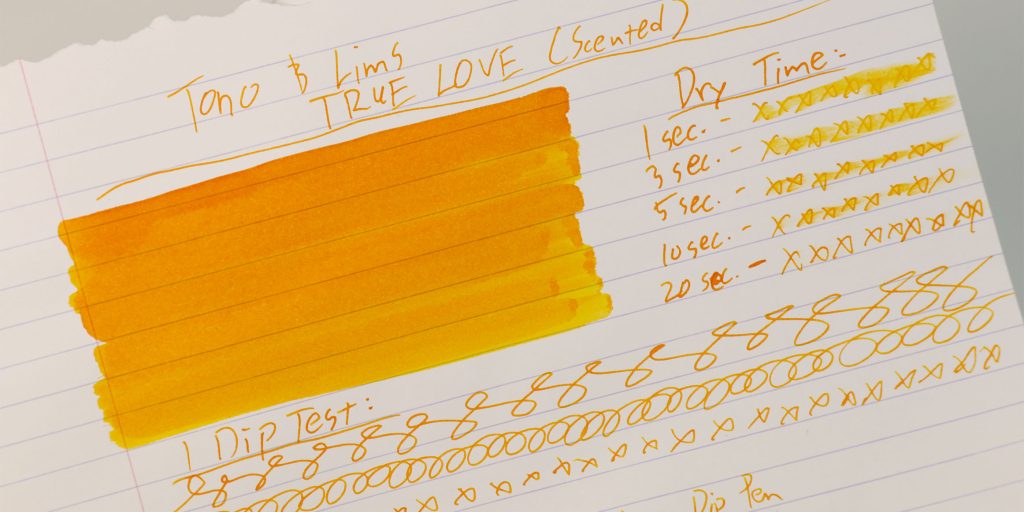 Tono & Lims
TRUE LOVE (Scented)
Dry Time:-
1 sec. - x x x x x x x x
3 sec. - x x x x x x x x
5 sec. - x x x x x x x x
10 sec. - x x x x x x x x
20 sec. - x x x x x x x x x
1 Dip Test:
x x x x x x x x x x x x x x x
Dip Pen